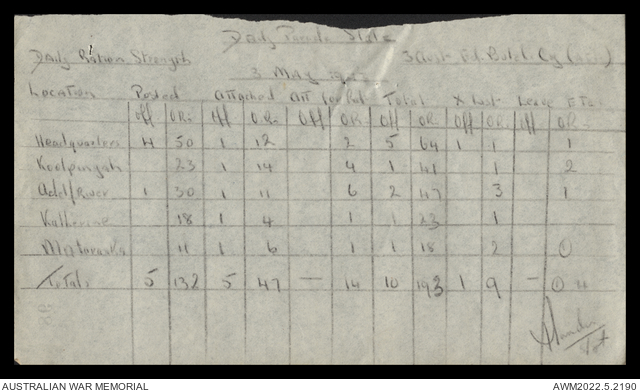 Daily Parade State
Daily Ration Strength 3 Aust Fd Butch Cy
3 MAY
Location Posted Attached Att for Rat Total X List Leave
Off O.R. Off O.R. Off O.R. Off O.R. Off O.R. Off O.R.
Headquarters 4 50 1 12 2 5 64 1 1 1
Koolpinyah 23 1 14 4 1 41 1 2
Adel/River 1 30 1 11 6 2 47 3 1
Katherine 18 1 4 1 1 23 1
Mataranka 11 1 6 1 1 18 2
Totals 5 132 5 47 — 14 10 193 1 9 — 4
AUSTRALIAN WAR MEMORIAL AWM2022.5.2190